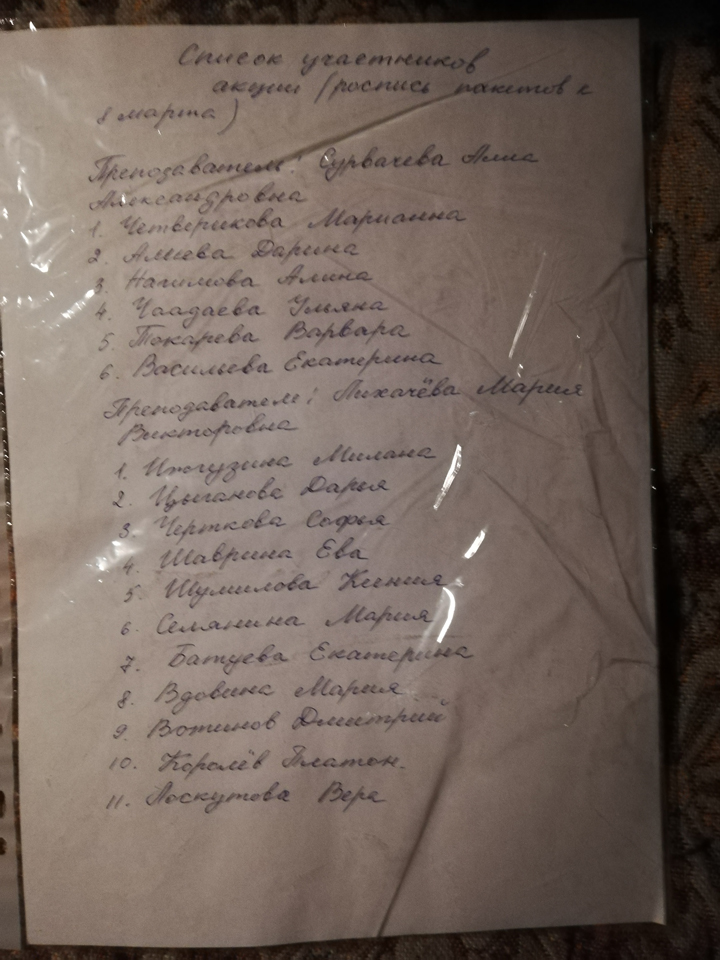 Список участников
акции (роспись пакетов к
8 марта)
Преподаватель: Сурвачева Алла
Александровна
1. Четверикова Марианна
2. Алиева Дарина
3. Нагимова Алина
4. Чаадаева Ульяна
5. Токарева Варвара
6. Васильева Екатерина
Преподаватель: Лихачёва Мария
Викторовна
1. Милана
2. Цыганова Дарья
3. Черткова Софья
4. Шаврина Ева
5. Шумилова Ксения
6. Селянина Мария
7. Батуева Екатерина
8. Вдовина Мария
9. Вотинов Дмитрий
10. Королёв Платон.
11. Лоскутова Вера